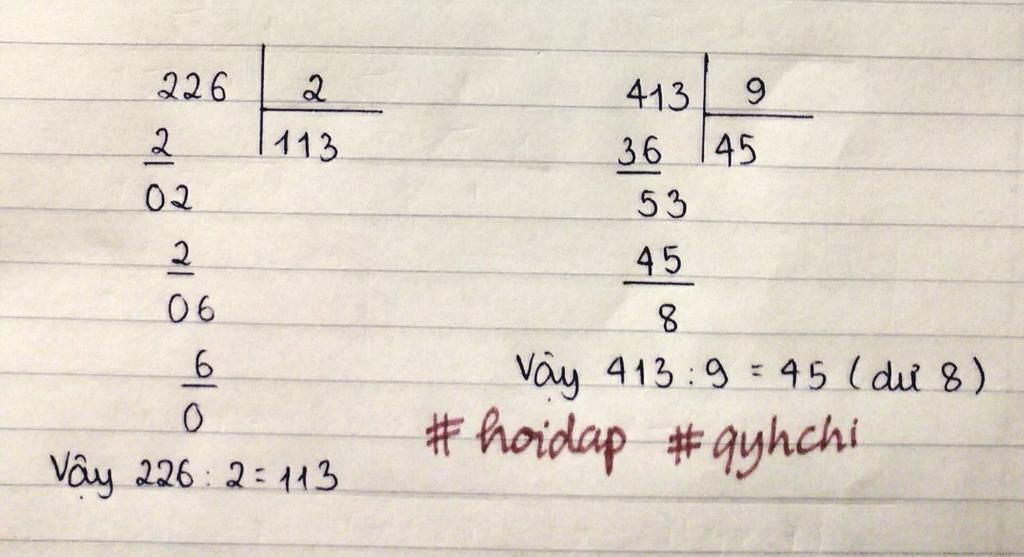 226 2
2 113
02
2
06
6
0
Vậy 226 : 2 = 113
413 9
36 45
53
45
8
Vậy 413 : 9 = 45 ( dư 8 )
# hoidap # qyhchi